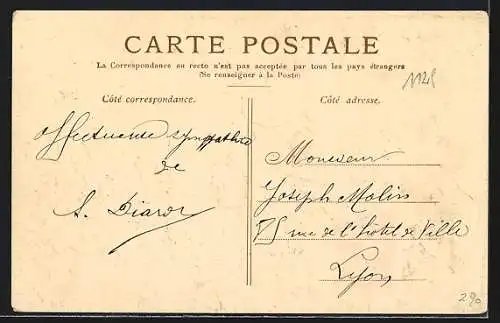 CARTE POSTALE
La Correspondance au recto n'est pas acceptée par tous les pays étrangers
(Se renseigner à la Poste)
Côté correspondance.
Côté adresse.
affectueuse sympathie
de
Monsieur
Joseph Molin
rue de l'hotel de Ville
Lyon
290